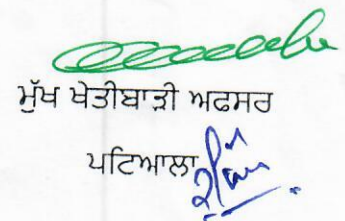 ਮੁੱਖ ਖੇਤੀਬਾੜੀ ਅਫਸਰ
ਪਟਿਆਲਾ